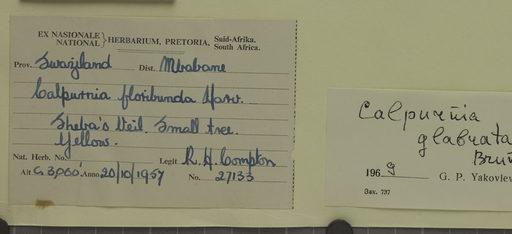 EX NASIONALE
NATIONAL } HERBARIUM, PRETORIA, Suid-Afrika.
South Africa.
Prov. Swaziland Dist. Mbabane
Calpurnia floribunda Harv.
Sheba's Veil. Small tree.
Yellow.
Nat. Herb. No. Legit R. H. Compton
Alt c. 3,000' Anno 20/10/1957 No. 27133
Calpurnia
glabrata
Brum
1969 G. P. Yakovlev
Зак. 737